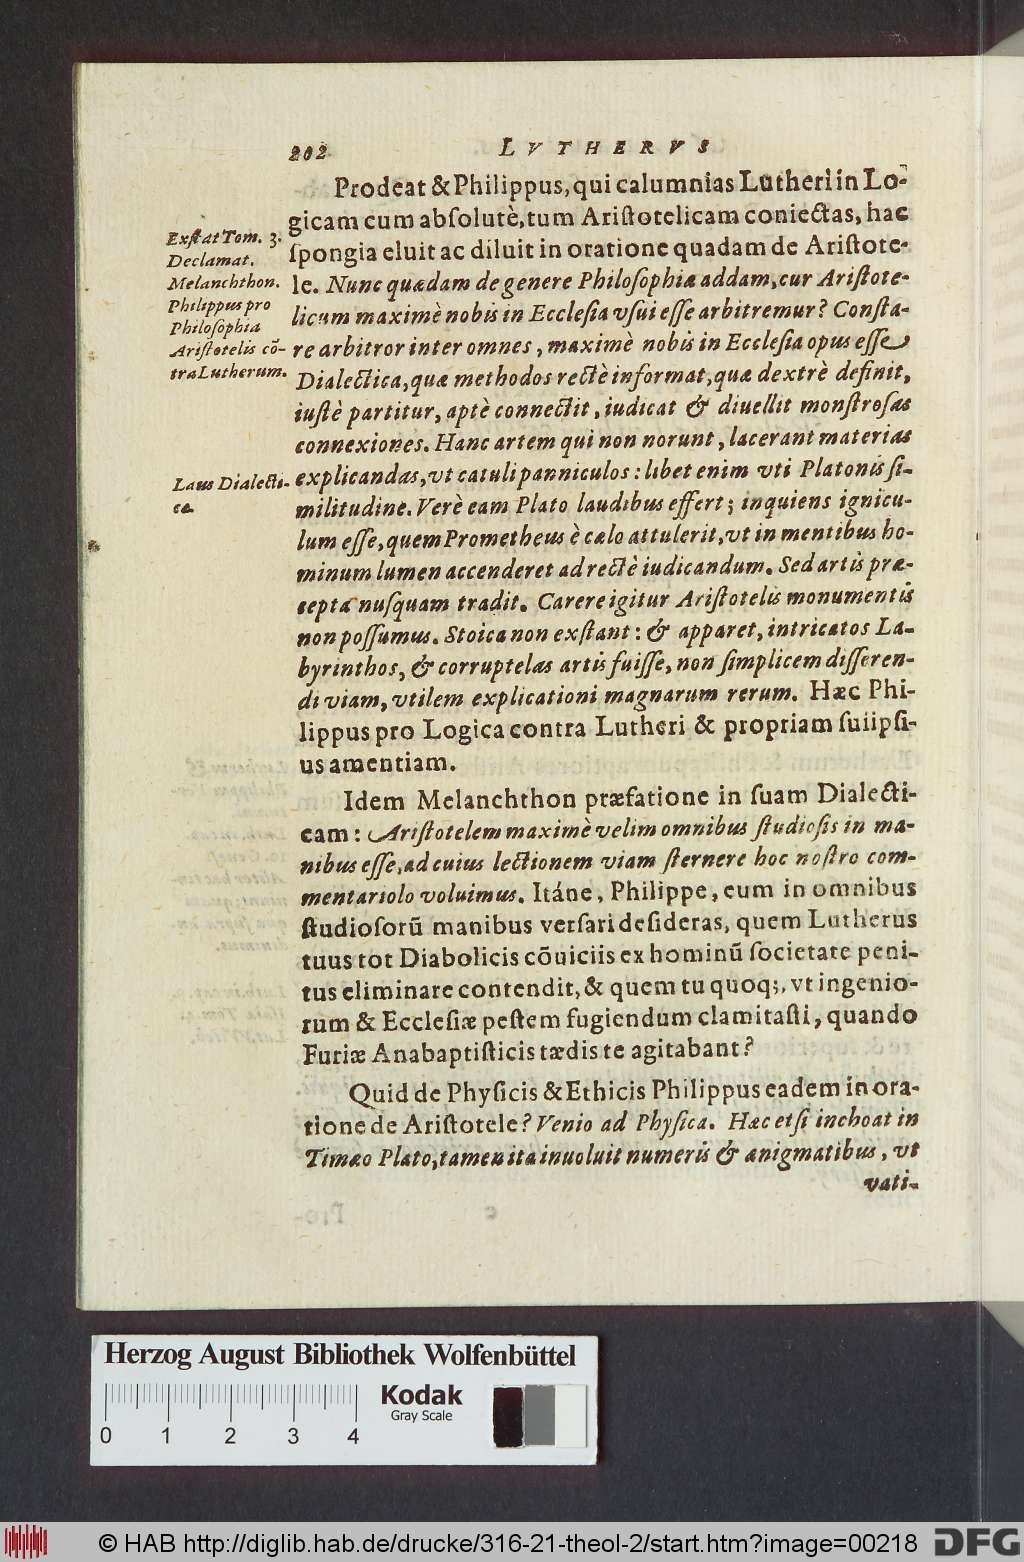 202 LVTHERVS
Prodeat & Philippus, qui calumnias Lutheri in Lo-
gicam cum abſolutè, tum Ariſtotelicam coniectas, hac
ſpongia eluit ac diluit in oratione quadam de Ariſtote-
le. Nunc quædam de genere Philoſophiæ addam, cur Ariſtote-
licum maximè nobis in Eccleſia vſui eſſe arbitremur? Conſta-
re arbitror inter omnes, maximè nobis in Eccleſia opus eſſe
Dialectica, quæ methodos rectè informat, quæ dextrè definit,
iuſtè partitur, aptè connectit, iudicat & diuellit monſtroſas
connexiones. Hanc artem qui non norunt, lacerant materias
explicandas, vt catuli panniculos: libet enim vti Platonis ſi-
militudine. Verè eam Plato laudibus effert; inquiens ignicu-
lum eſſe, quem Prometheus è cælo attulerit, vt in mentibus ho-
minum lumen accenderet ad rectè iudicandum. Sed artis præ-
cepta nuſquam tradit. Carere igitur Ariſtotelis monumentis
non poſſumus. Stoica non exſtant: & apparet, intricatos La-
byrinthos, & corruptelas artis fuiſſe, non ſimplicem differen-
di viam, vtilem explicationi magnarum rerum. Hæc Phi-
lippus pro Logica contra Lutheri & propriam ſuiipſi-
us amentiam.
Idem Melanchthon præfatione in ſuam Dialecti-
cam: Ariſtotelem maximè velim omnibus ſtudioſis in ma-
nibus eſſe, ad cuius lectionem viam ſternere hoc noſtro com-
mentariolo voluimus. Itáne, Philippe, cum in omnibus
ſtudioſorũ manibus verſari deſideras, quem Lutherus
tuus tot Diabolicis cõuiciis ex hominũ ſocietate peni-
tus eliminare contendit, & quem tu quoq;, vt ingenio-
rum & Eccleſiæ peſtem fugiendum clamitaſti, quando
Furiæ Anabaptiſticis tædis te agitabant?
Quid de Phyſicis & Ethicis Philippus eadem in ora-
tione de Ariſtotele? Venio ad Phyſica. Hæc etſi inchoat in
Timæo Plato, tamen ita inuoluit numeris & ænigmatibus, vt
vati-
Exſtat Tom. 3.
Declamat.
Melanchthon.
Philippus pro
Philoſophia
Ariſtotelis cõ-
tra Lutherum.
Laus Dialecti-
cæ.
Herzog August Bibliothek Wolfenbüttel
Kodak
Gray Scale
0 1 2 3 4
© HAB http://diglib.hab.de/drucke/316-21-theol-2/start.htm?image=00218 DFG